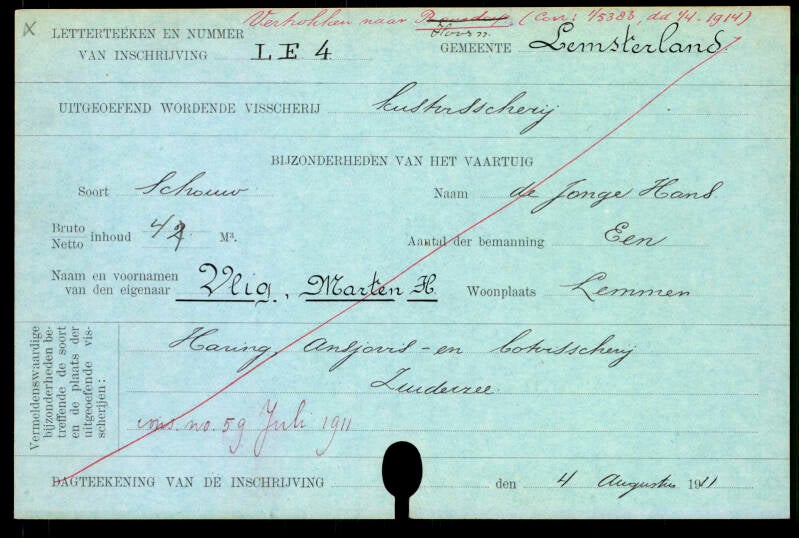 Vertrokken naar (Corr: 1/5383, dd 1/4. 1914)
Hoorn
LETTERTEEKEN EN NUMMER
VAN INSCHRIJVING LE 4 GEMEENTE Lemsterland
UITGEOEFEND WORDENDE VISSCHERIJ kustvisscherij
BIJZONDERHEDEN VAN HET VAARTUIG
Soort Schouw Naam de Jonge Hans
Bruto
Netto inhoud M³. Aantal der bemanning Een
Naam en voornamen
van den eigenaar Vlig, Marten H. Woonplaats Lemmer
Vermeldenswaardige
bijzonderheden be-
treffende de soort
en de plaats der
uitgeoefende vis-
scherijen:
Haring, Ansjovis- en botvisscherij
Zuiderzee
cons. no. 59 Juli 1911
DAGTEEKENING VAN DE INSCHRIJVING den 4 Augustus 1911